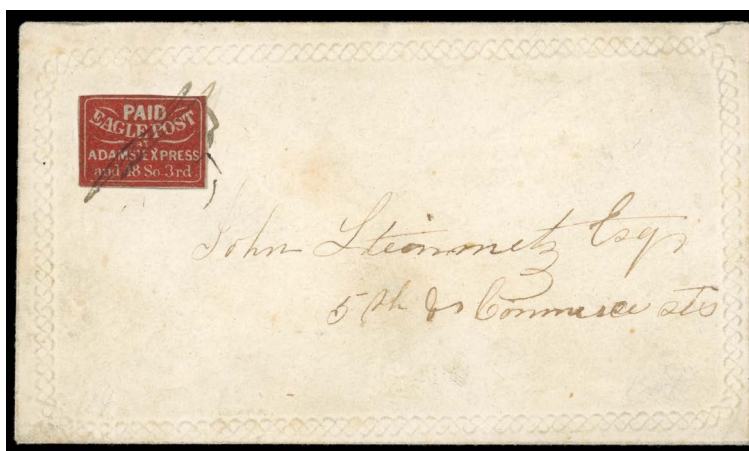 PAID
EAGLE POST
AT
ADAMS' EXPRESS
and 48 So 3rd
John Steinmetz Esqr
5th & Commerce sts